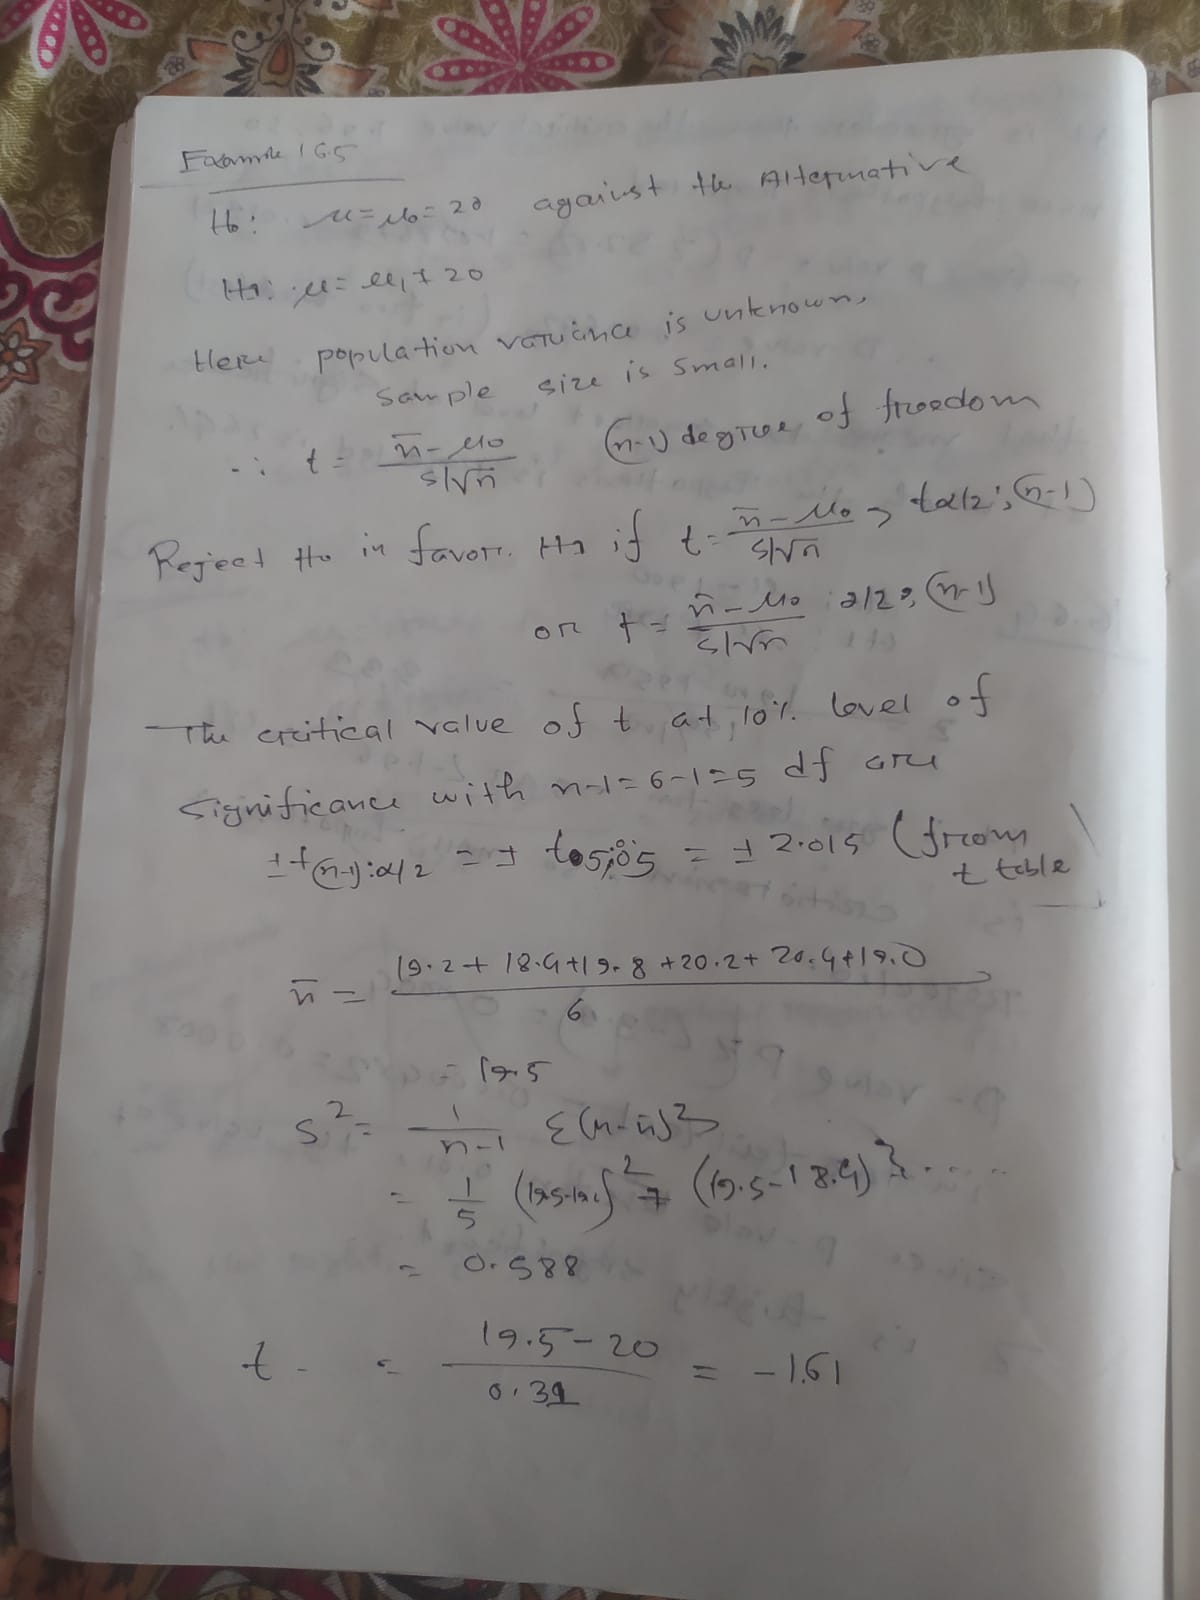 Example 16.5
H₀: μ = μ₀ = 20 against the Alternative
H₁: μ = μ₁ ≠ 20
Here population variance is unknown,
sample size is small.
∴ t = x̄ - μ₀ / s/√n (n-1) degree of freedom
Reject H₀ in favor. H₁ if t = x̄ - μ₀ / s/√n > tα/2; (n-1)
or t = x̄ - μ₀ / s/√n α/2, (n-1)
The critical value of t at 10% level of
significance with n-1 = 6-1 = 5 df are
± t(n-1):α/2 = ± t 5;.05 = ± 2.015 (from
t table
x̄ = 19.2 + 18.4 + 19.8 + 20.2 + 20.4 + 19.0 / 6
= 19.5
s² = 1/n-1 Σ(x-x̄)²
= 1/5 (19.5-19.2)² + (19.5-18.4)² ....
= 0.588
t = 19.5 - 20 / 0.31 = -1.61